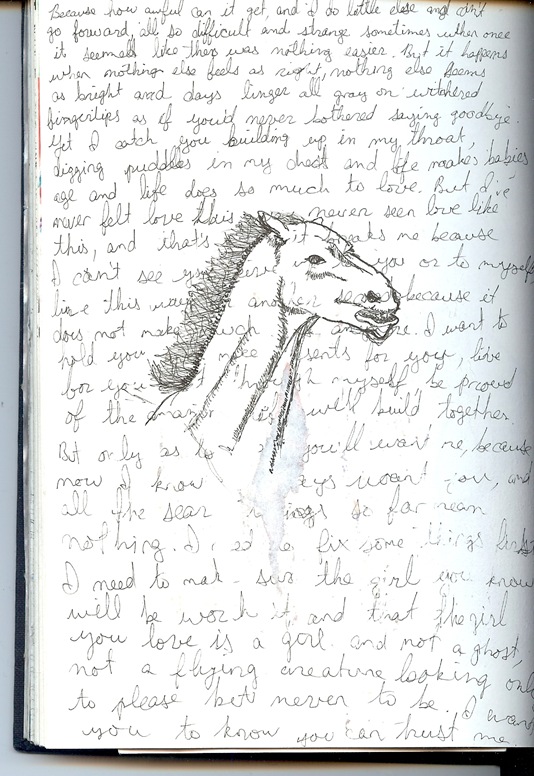 Because how awful can it get, and I do little else and can't
go forward, all so difficult and strange sometimes when once
it seemed like there was nothing easier. But it happens
when nothing else feels as right, nothing else seems
as bright and days linger all gray on withered
fingertips as if you'd never bothered saying goodbye.
Yet I catch you building up in my throat,
digging puddles in my chest and life makes babies
age and life does so much to love. But I've
never felt love this never seen love like
this, and that's makes me because
I can't see you or to myself
live this way another because it
does not make much I want to
hold you, make for you, live
for you through myself be proud
of the we'll build together.
But only as you'll want me, because
now I know want you, and
all the so far mean
nothing. I fix some things first
I need to make sure the girl you know
we'll be worth it, and that the girl
you love is a girl and not a ghost,
not a flying creature looking only
to please but never to be. I want
you to know you can trust me.